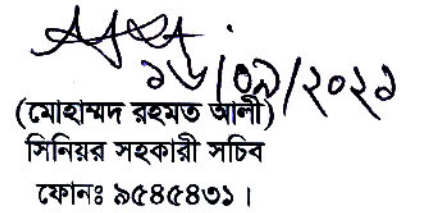 ১৬/০৯/২০২১
(মোহাম্মদ রহমত আলী)
সিনিয়র সহকারী সচিব
ফোনঃ ৯৫৪৫৪৩১।